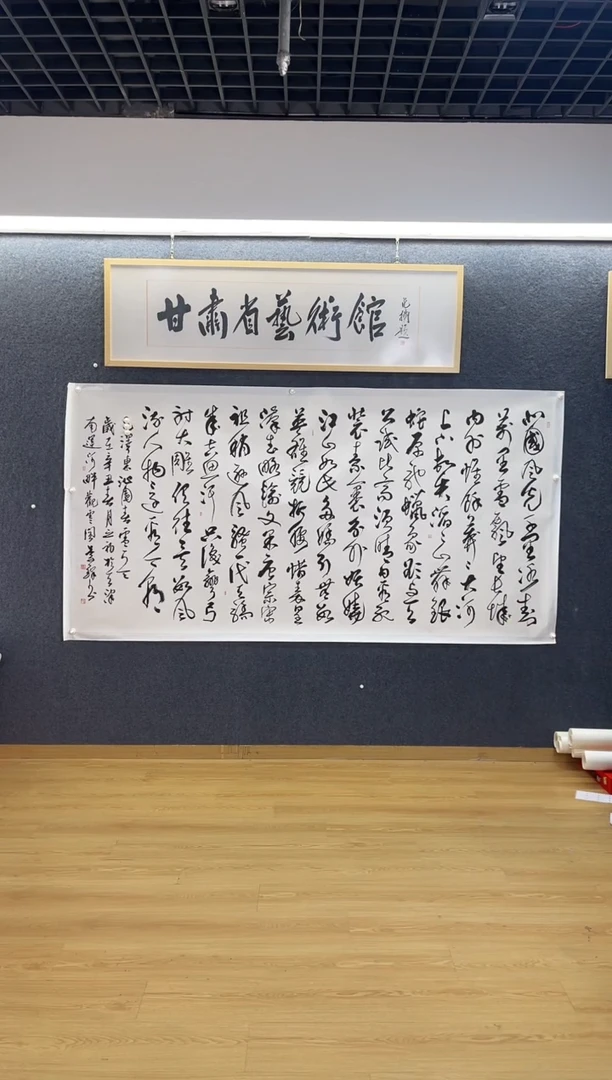 甘肅省藝術館
北國風光千里冰封
萬里雪飄望長城
內外惟餘莽々大河
上下頓失滔々山舞銀
蛇原馳蠟象欲與天
公試比高須晴日看紅
裝素裹分外妖嬈
江山如此多嬌引無數
英雄競折腰惜秦皇
漢武略輸文采唐宗宋
祖稍遜風騷一代天驕
成吉思汗只識彎弓
射大雕俱往矣數風
流人物還看今朝
澤東沁園春雪
歲在辛丑春月之初於天津
南運河畔觀雲閣